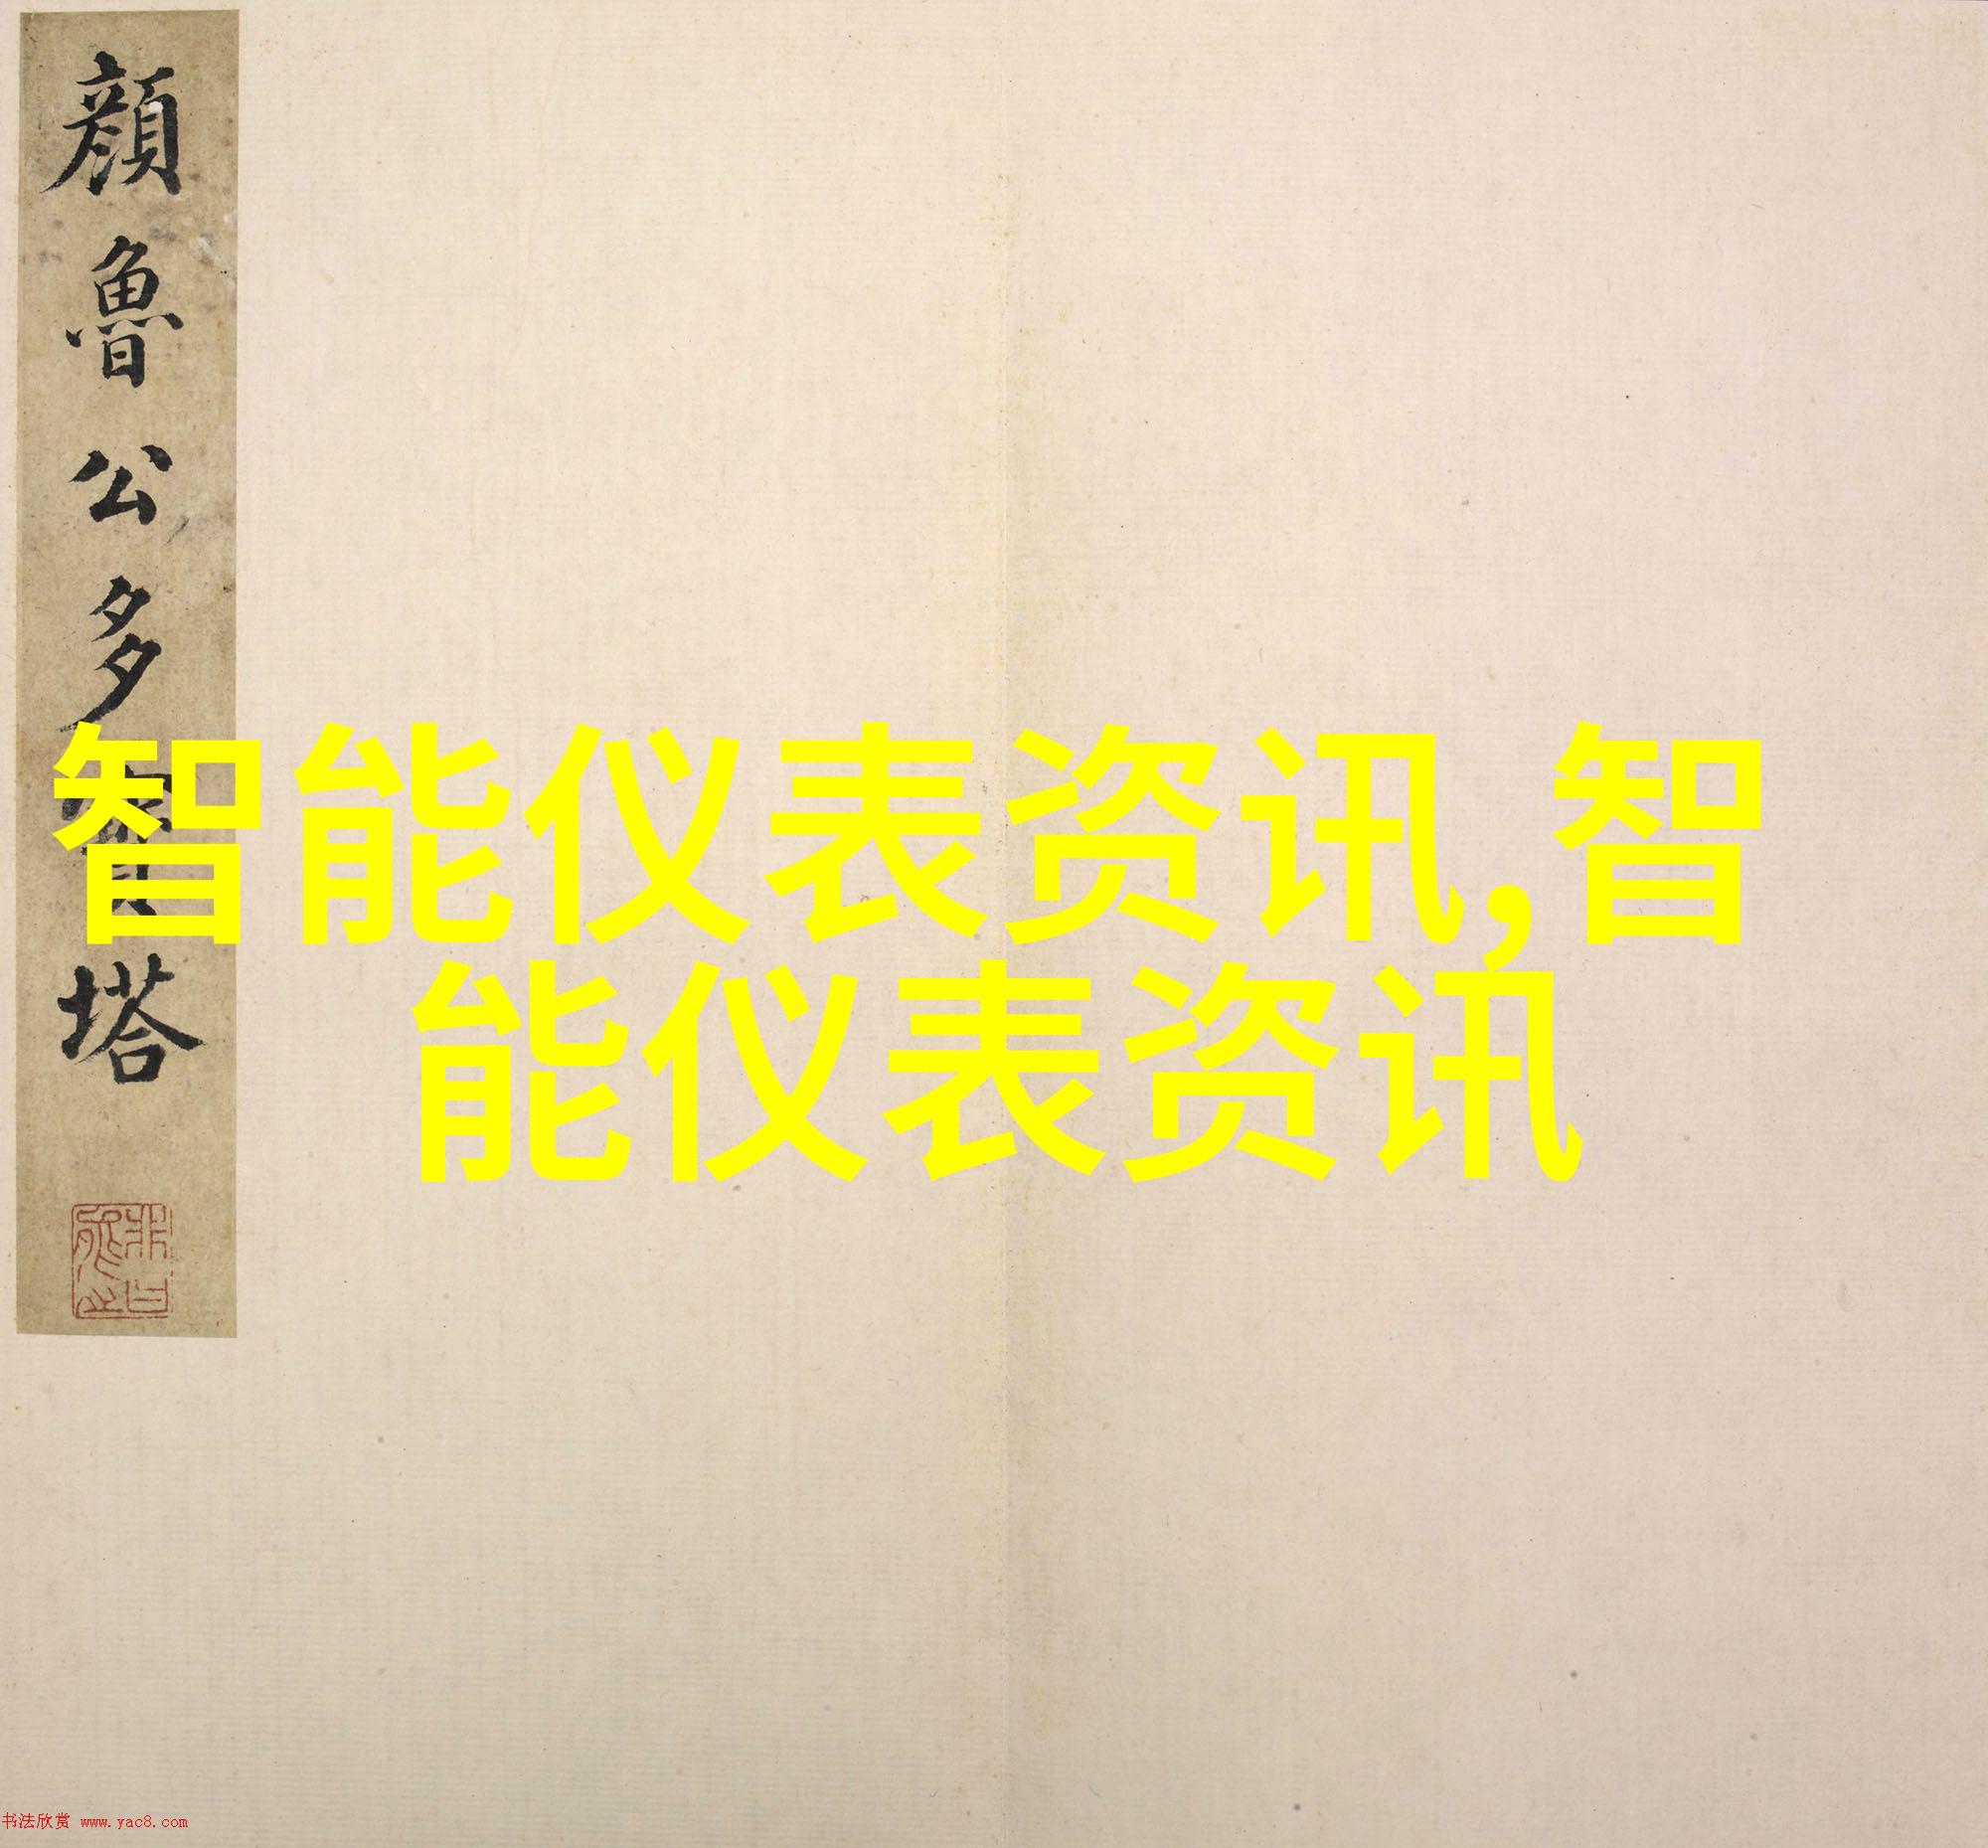 顏魯公多寶塔
智能仪表资讯,智
能仪表资讯
书法欣赏 www.yac8.com